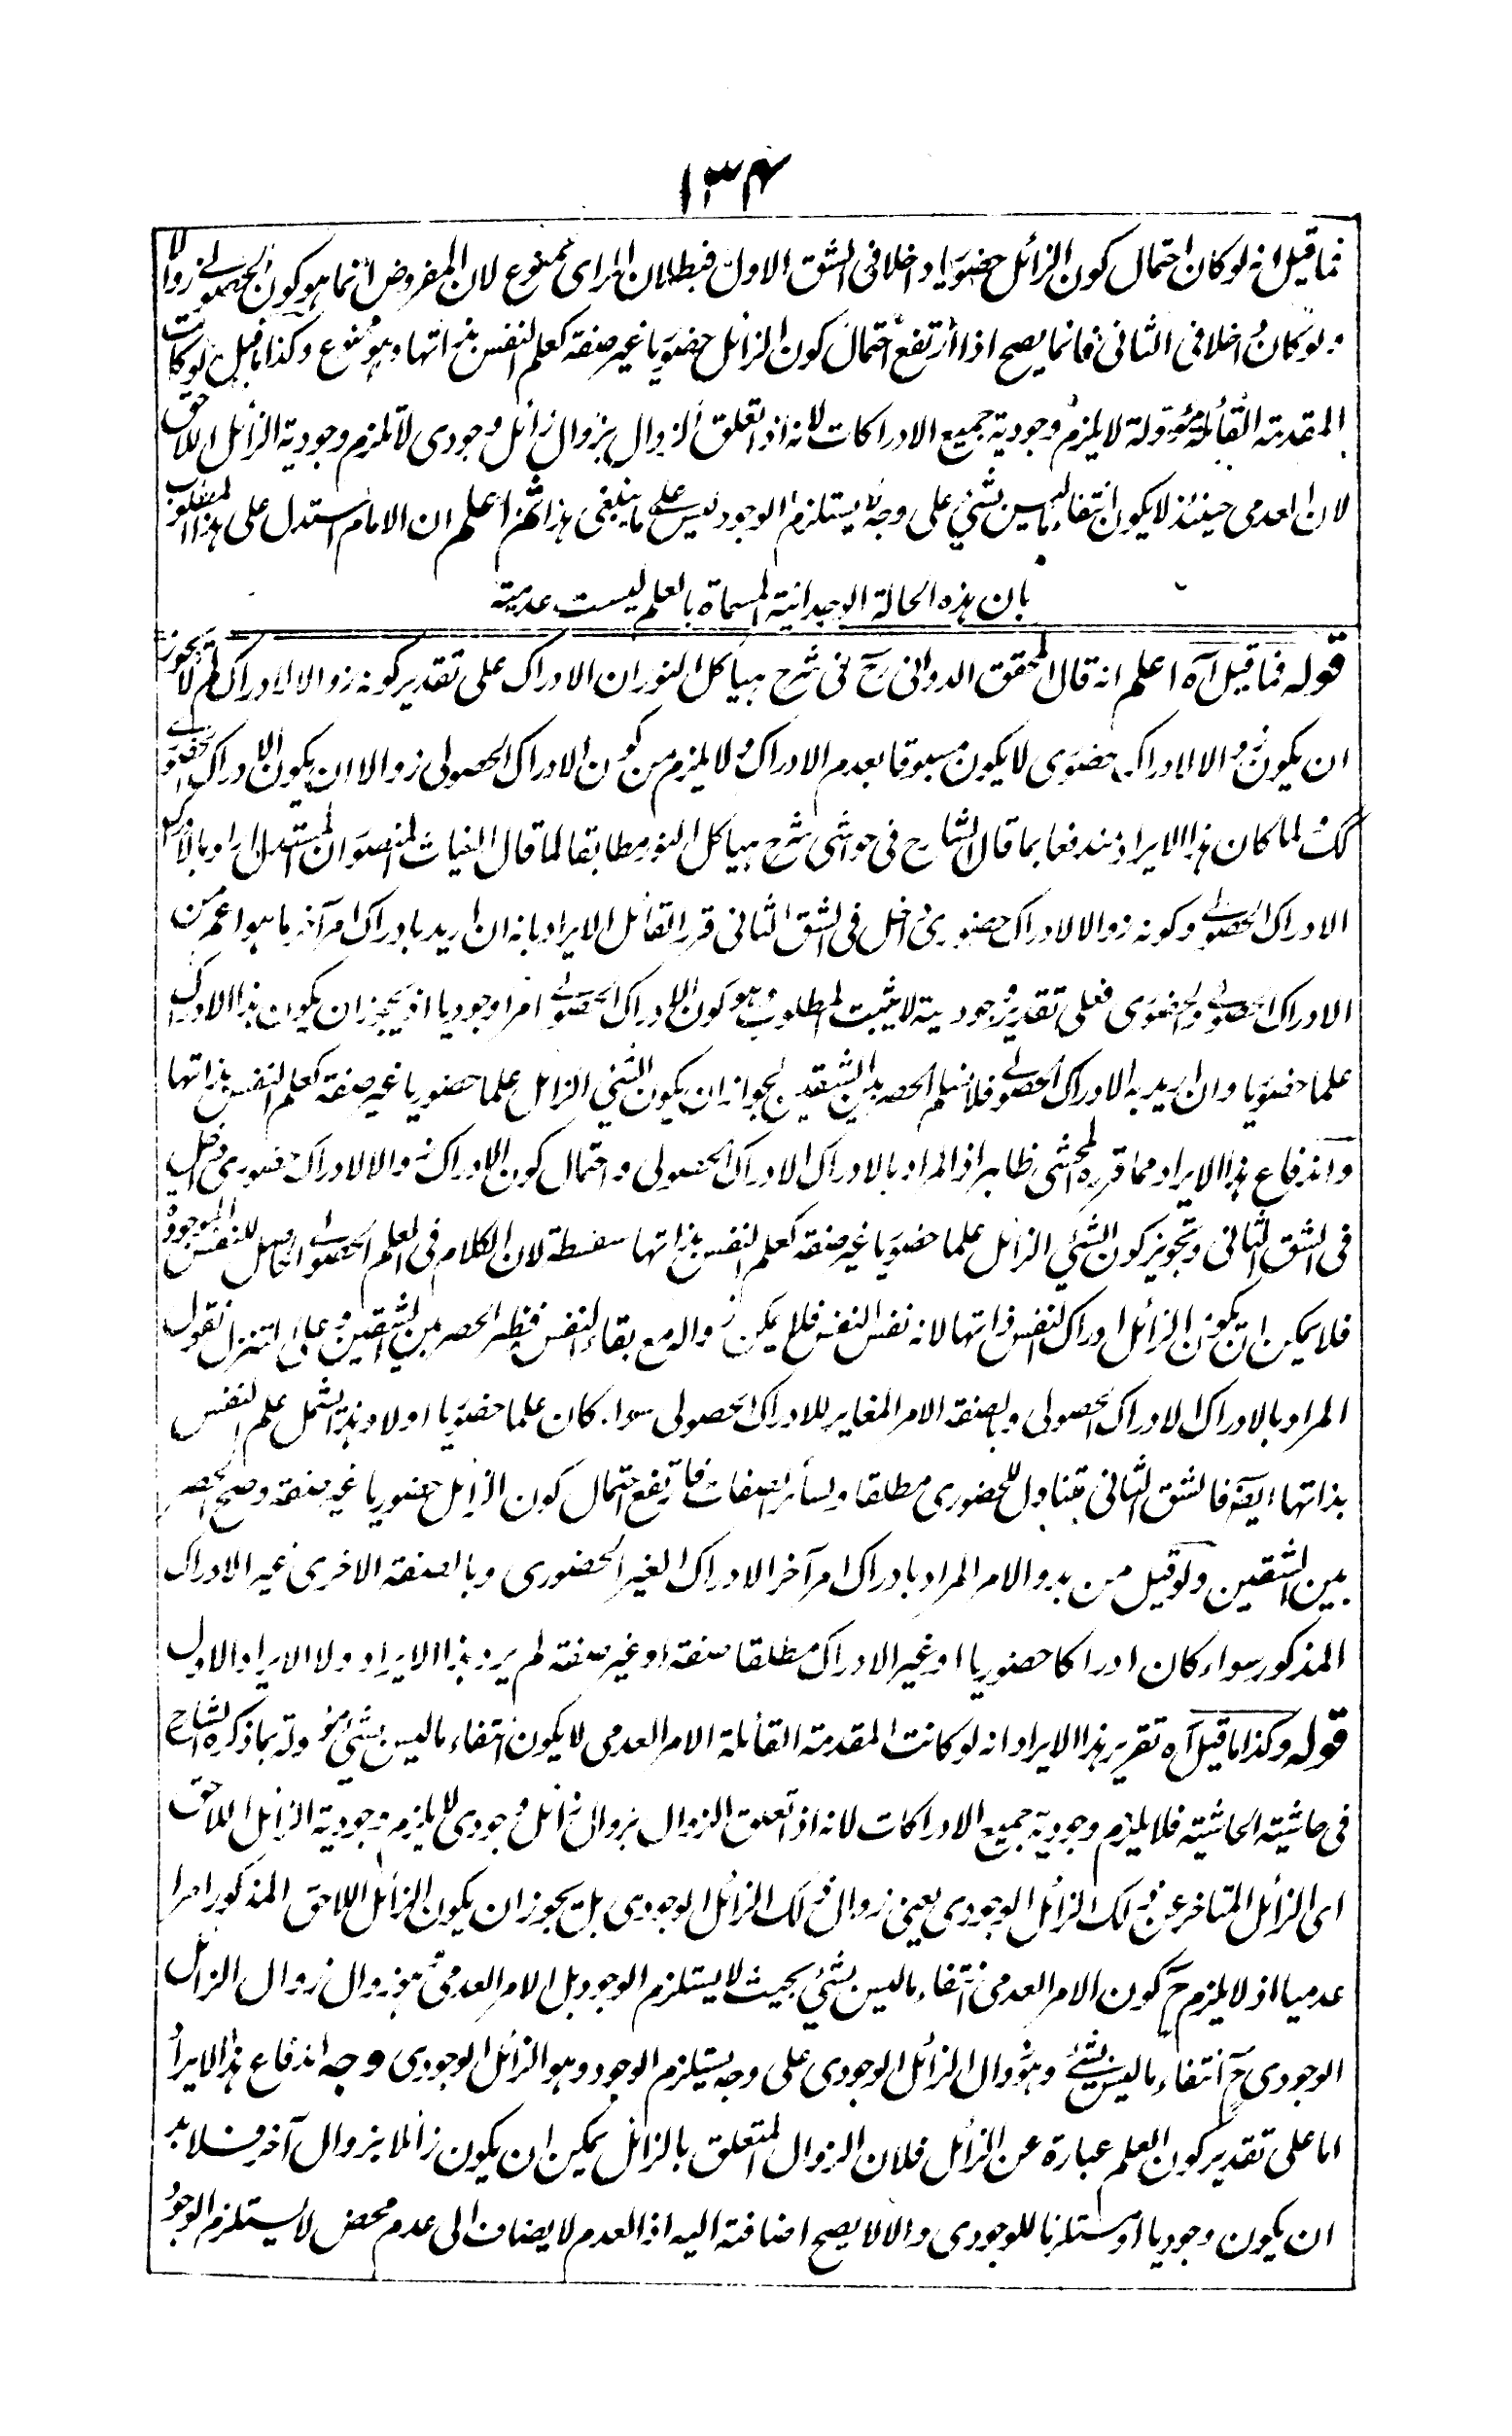 ١٣٤
فما قيل انه لو كان احتمال كون الزائل حضوريا داخلا فى الشق الاول فبطلان اى ممنوع لان المفروض انما هو كون الحصولى زوالا
ولو كان داخلا فى الثانى فانما يصح اذا ارتفع احتمال كون الزائل حضوريا غير صفة كعلم النفس بذاتها وهو ممنوع وكذا ما قيل لو كانت
المقدمة القائلة مؤولة لا يلزم وجودية جميع الادراكات لانه اذا تعلق الزوال بزوال زائل وجودى لا يلزم وجودية الزائل اللاحق
لان العدمى حينئذ لا يكون انتفاء ما ليس بشئ على وجه لا يستلزم الوجود ليس على ما ينبغى هذا ثم اعلم ان الامام استدل على هذا المطلوب
بان هذه الحالة الوجدانية المسماة بالعلم ليست عدمية
قوله فما قيل آه اعلم انه قال المحقق الدوانى رح فى شرح هياكل النور ان الادراك على تقدير كونه زوالا لادراك لم لا يجوز
ان يكون زوالا لادراك حضورى لا يكون مسبوقا بعدم الادراك ولا يلزم من كون الادراك الحصولى زوالا ان يكون الادراك الحضورى
كك لما كان هذا الايراد مندفعا بما قال الشارح فى حواشى شرح هياكل النور مطابقا لما قال الغياث المنصور ان المستدل اراد بالادراك
الادراك الحصولى وكونه زوالا لادراك حضورى داخل فى الشق الثانى قرر القائل الايراد بانه ان اريد بادراك امر آخر ما هو اعم من
الادراك الحصولى والحضورى فعلى تقدير وجوديته لا يثبت المطلوب وهو كون الادراك الحصولى امرا وجوديا اذ يجوز ان يكون هذا الادراك
علما حضوريا وان اريد به الادراك الحصولى فلا نسلم الحصر بين الشقين لجواز ان يكون الشئ الزائل علما حضوريا غير صفة كعلم النفس بذاتها
واندفاع هذا الايراد مما قرره المحشى ظاهر اذ المراد بالادراك الادراك الحصولى واحتمال كون الادراك زوالا لادراك حضورى داخل
فى الشق الثانى وتجويز كون الشئ الزائل علما حضوريا غير صفة كعلم النفس بذاتها سفسطة لان الكلام فى العلم الحصولى الحاصل للنفس الموجودة
فلا يمكن ان يكون الزائل ادراك النفس ذاتها لانه نفس النفس فلا يمكن زواله مع بقاء النفس فظهر الحصر بين الشقين وعلى التنزل نقول
المراد بالادراك الادراك الحصولى وبصفة الامر المغاير للادراك الحصولى سواء كان علما حضوريا اولا وهذا يشمل علم النفس
بذاتها ايضا فالشق الثانى متناول للحضورى مطلقا ولسائر الصفات فارتفع احتمال كون الزائل حضوريا غير صفة وصح الحصر
بين الشقين ولو قيل من بدو الامر المراد بادراك امر آخر الادراك الغير الحضورى وبالصفة الاخرى غير الادراك
المذكور سواء كان ادراكا حضوريا او غير الادراك مطلقا صفة او غير صفة لم يرد هذا الايراد ولا الايراد الاول
قوله وكذا ما قيل آه تقرير هذا الايراد انه لو كانت المقدمة القائلة الامر العدمى لا يكون انتفاء ما ليس بشئ مؤولة بما ذكره الشارح
فى حاشية الحاشية فلا يلزم وجودية جميع الادراكات لانه اذا تعلق الزوال بزوال زائل وجودى لا يلزم وجودية الزائل اللاحق
اى الزائل المتاخر عن ذلك الزائل الوجودى يعنى زوال ذلك الزائل الوجودى بل يجوز ان يكون الزائل اللاحق المذكور امرا
عدميا اذ لا يلزم ح كون الامر العدمى انتفاء ما ليس بشئ بحيث لا يستلزم الوجود بل الامر العدمى هو زوال زوال الزائل
الوجودى ح انتفاء ما ليس بشئ وهو زوال الزائل الوجودى على وجه يستلزم الوجود وهو الزائل الوجودى وجه اندفاع هذا الايراد
اما على تقدير كون العلم عبارة عن الزائل فلان الزوال المتعلق بالزائل يمكن ان يكون زائلا بزوال آخر فلا بد
ان يكون وجوديا او مستلزما للوجودى والا لا يصح اضافته اليه اذ العدم لا يضاف الى عدم محض لا يستلزم الوجود